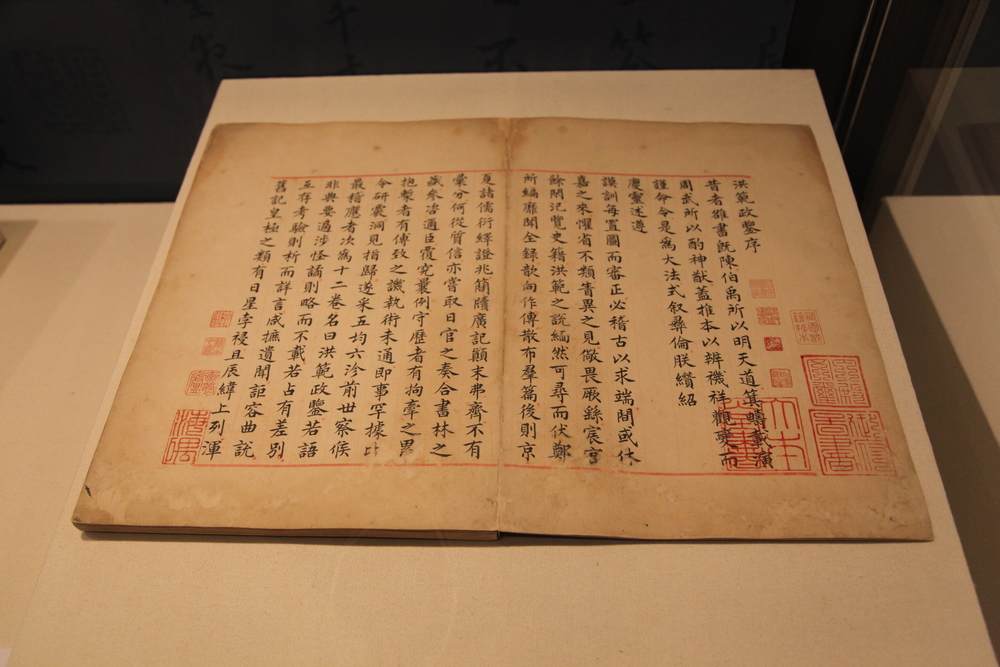 洪範政鑒序
昔者雒書既陳伯禹所以明天道箕疇載演
周武所以酌神猷蓋推本以辨禨祥觀變而
謹命令是為大法式叙彝倫朕纘紹
慶靈述遵
謨訓每置圖而審正必稽古以求端間或休
嘉之來懼省不類眚異之見儆畏厥繇宸宫
餘閒記覽史籍洪範之說緬然可尋而伏鄭
所編靡聞全録歆向作傳散布羣篇後則京
夏諸儒衍繹證兆簡牘廣記顛末弗齊不有
彙分何從質信亦嘗取日官之奏合書林之
藏參咨邇臣覆究曩例守歷者有拘牽之累
抱槧者有傅致之譏執術未通即事罕據比
令研覈洞見指歸遂采五均六沴前世察候
最稽應者次為十二卷名曰洪範政鑒若語
非典要過涉怪譎則略而不載若占有差别
互存考驗則析而詳言咸摭遺聞詎容曲說
舊記皇極之類有日星孛祲且辰緯上列渾